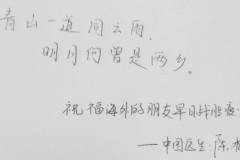 青山一道同云雨,
明月何曾是两乡。
祝福海外的朋友早日战胜疫
——中国医生 陈